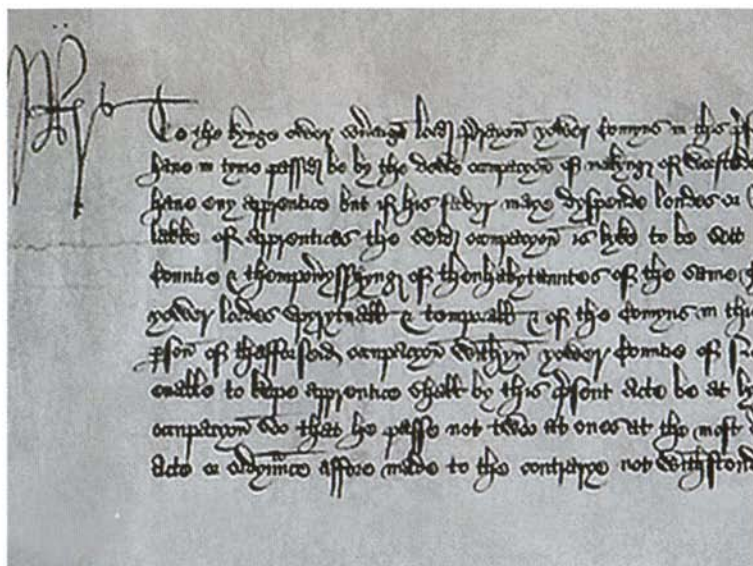 To the kynge ower sou'aign lord p'rayon yower Comyns in this p's
have in tyme passed be by the dooble occupacyon of makyng of Worsted
have eny apprentice but if his fadyr maye dyspende londes or
lakke of apprentices the seid occupacyon is lyke to be
Countie & thenpov'ysshyng of thenhabytauntes of the same
yower lordes spyrytuall & temporall & of the Comyns in this
p'son of thafforseid occupacyon withyn yower Countie of
enable to kepe apprentice shall by this p'sent Acte be at
occupacyon soo that he passe not twoo at ones at the most
Acte or ordyn'nce affore made to the contrarye not withstond